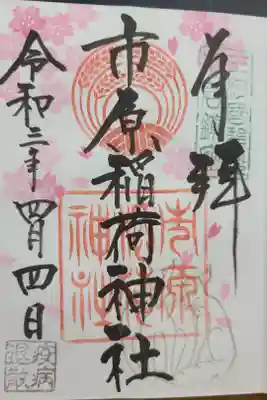 奉拝
市原稲荷神社
令和二年四月四日
市原
稲荷
神社
疫病
退散